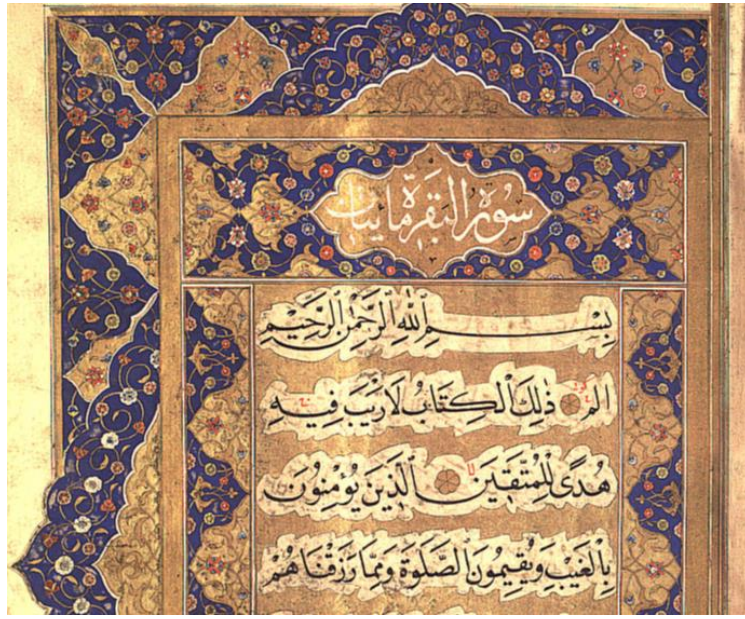 سُورَةُ الْبَقَرَةِ مِائَتَانِ
بِسْمِ ٱللَّهِ ٱلرَّحْمَٰنِ ٱلرَّحِيمِ
الم ذَٰلِكَ ٱلْكِتَابُ لَا رَيْبَ فِيهِ
هُدًى لِلْمُتَّقِينَ ٱلَّذِينَ يُؤْمِنُونَ
بِالْغَيْبِ وَيُقِيمُونَ ٱلصَّلَوٰةَ وَمِمَّا رَزَقْنَاهُمْ